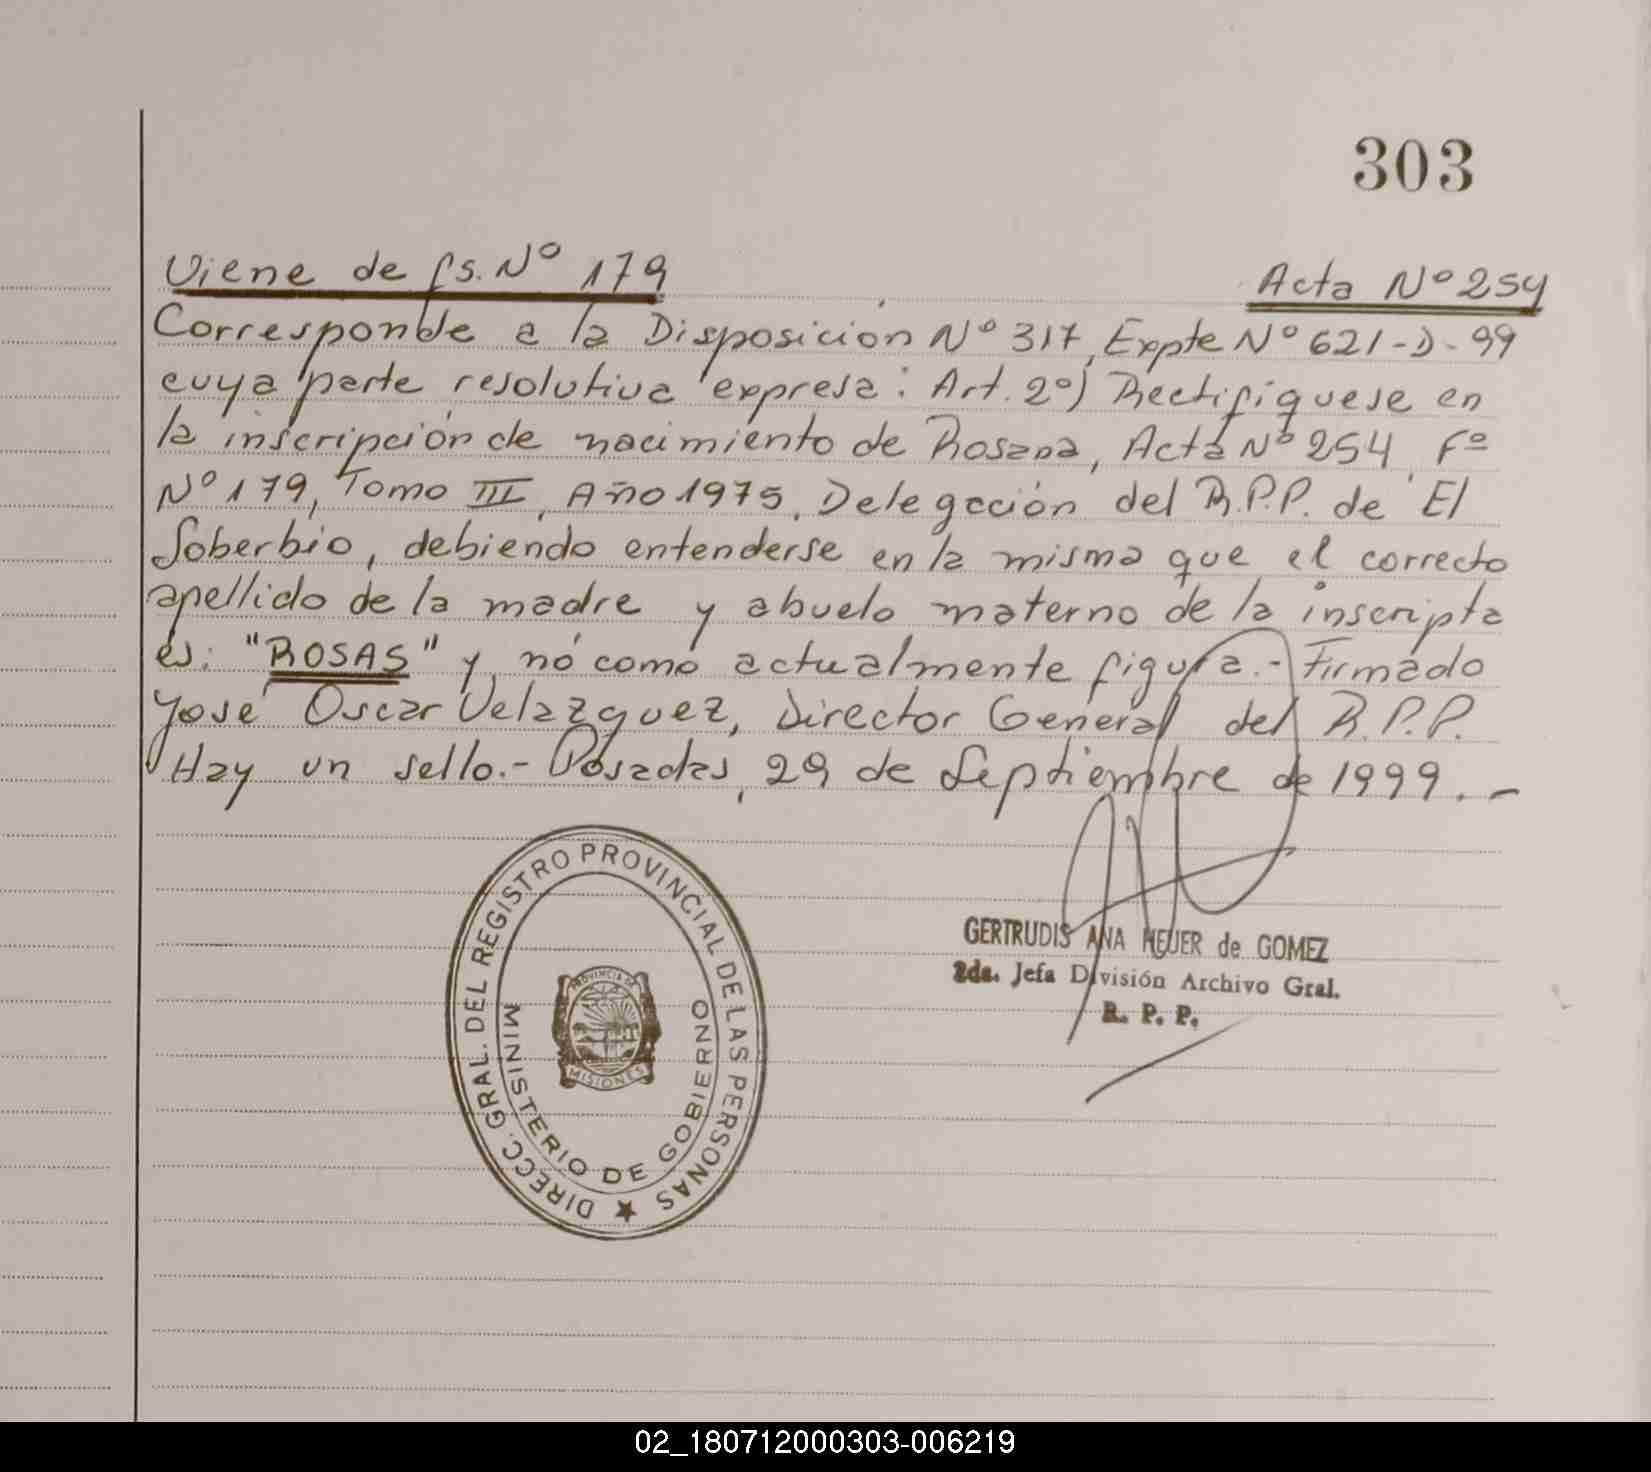 303
Viene de fs. Nº 179 Acta Nº 254
Corresponde a la Disposición Nº 317, Expte Nº 621-D-99
cuya parte resolutiva expresa: Art. 2º) Rectifíquese en
la inscripción de nacimiento de Rosana, Acta Nº 254, Fº
Nº 179, Tomo III, Año 1975, Delegación del R.P.P. de El
Soberbio, debiendo entenderse en la misma que el correcto
apellido de la madre y abuelo materno de la inscripta
es: "ROSAS" y nó como actualmente figura.- Firmado
José Oscar Velazquez, Director General del R.P.P.
Hay un sello.- Posadas, 29 de Septiembre de 1999.-
DIRECC. GRAL. DEL REGISTRO PROVINCIAL DE LAS PERSONAS
MINISTERIO DE GOBIERNO
PROVINCIA DE
MISIONES
GERTRUDIS ANA HEUER de GOMEZ
2da. Jefa División Archivo Gral.
R. P. P.
02_180712000303-006219